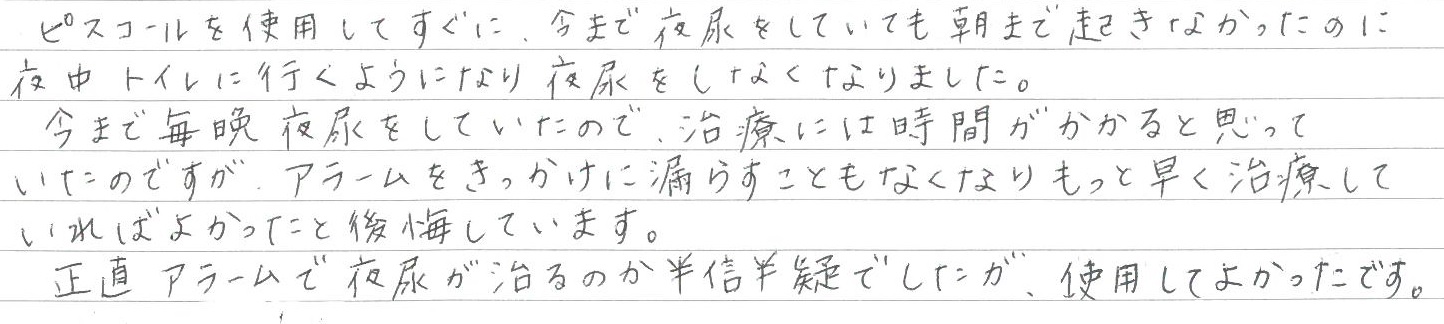 ピスコールを使用してすぐに、今まで夜尿をしていても朝まで起きなかったのに
夜中トイレに行くようになり夜尿をしなくなりました。
今まで毎晩夜尿をしていたので、治療には時間がかかると思って
いたのですが、アラームをきっかけに漏らすこともなくなりもっと早く治療して
いればよかったと後悔しています。
正直アラームで夜尿が治るのか半信半疑でしたが、使用してよかったです。